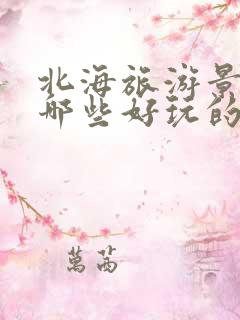 北海旅游景
哪些好玩的
萬茜